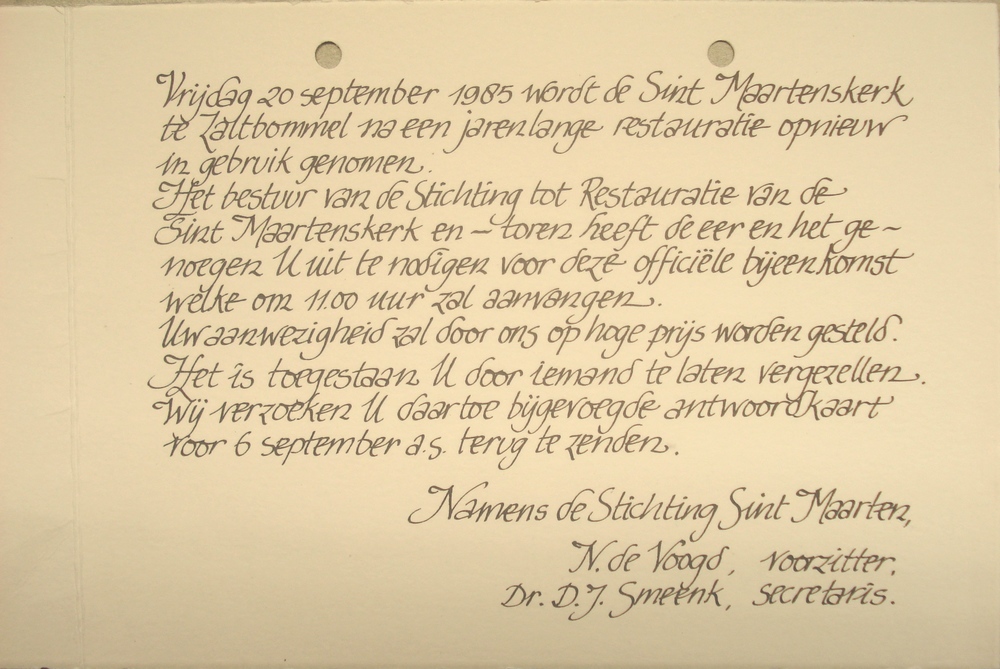 Vrijdag 20 september 1985 wordt de Sint Maartenskerk
te Zaltbommel na een jarenlange restauratie opnieuw
in gebruik genomen.
Het bestuur van de Stichting tot Restauratie van de
Sint Maartenskerk en - toren heeft de eer en het ge-
noegen U uit te nodigen voor deze officiële bijeenkomst
welke om 11.00 uur zal aanvangen.
Uw aanwezigheid zal door ons op hoge prijs worden gesteld.
Het is toegestaan U door iemand te laten vergezellen.
Wij verzoeken U daartoe bijgevoegde antwoordkaart
voor 6 september a.s. terug te zenden.
Namens de Stichting Sint Maarten,
N. de Voogd, voorzitter.
Dr. D.J. Smeenk, secretaris.